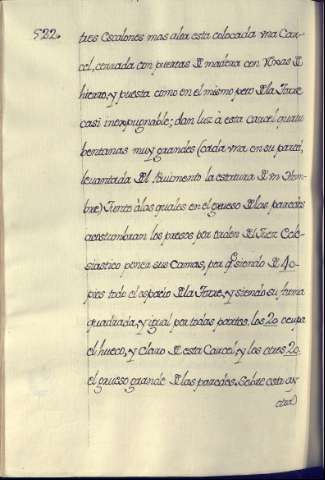 522.
tres Escalones mas alta esta colocada vna Car-
cel, cerrada con puertas de madera con Rexas de
hierro, y puesta como en el mismo pero de la Torre
casi inexpugnable; dan luz à esta carcel quatro
bentanas muy grandes (cada vna en su pared,
levantada del Pauimento la estatura de vn Hom-
bre) Junto à las quales en el grueso de las paredes
acostumbram los presos por orden del Juez Ecle-
siastico poner sus Camas, por qe. siendo de 40
pies todo el espacio de la Torre, y siendo su forma
quadrada, y igual por todas partes, los 20 ocupa
el hueco, y Claro de esta Carcel; y los otros 20.
el grueso grande de las paredes. Sobre esta ay
otra)